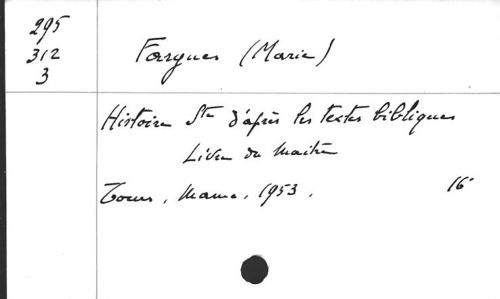 295
312
3
Fargues (Marie)
Histoire Ste d'après les textes bibliques
Livre du Maître
Tours, Mame, 1953. 16°